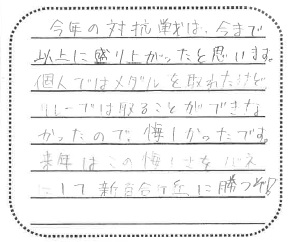 今年の対抗戦は、今まで
以上に盛り上がったと思います。
個人ではメダルを取れたけど
リレーでは取ることができな
かったので、悔しかったです。
来年はこの悔しさをバネ
にして新百合ヶ丘に勝つぞ!